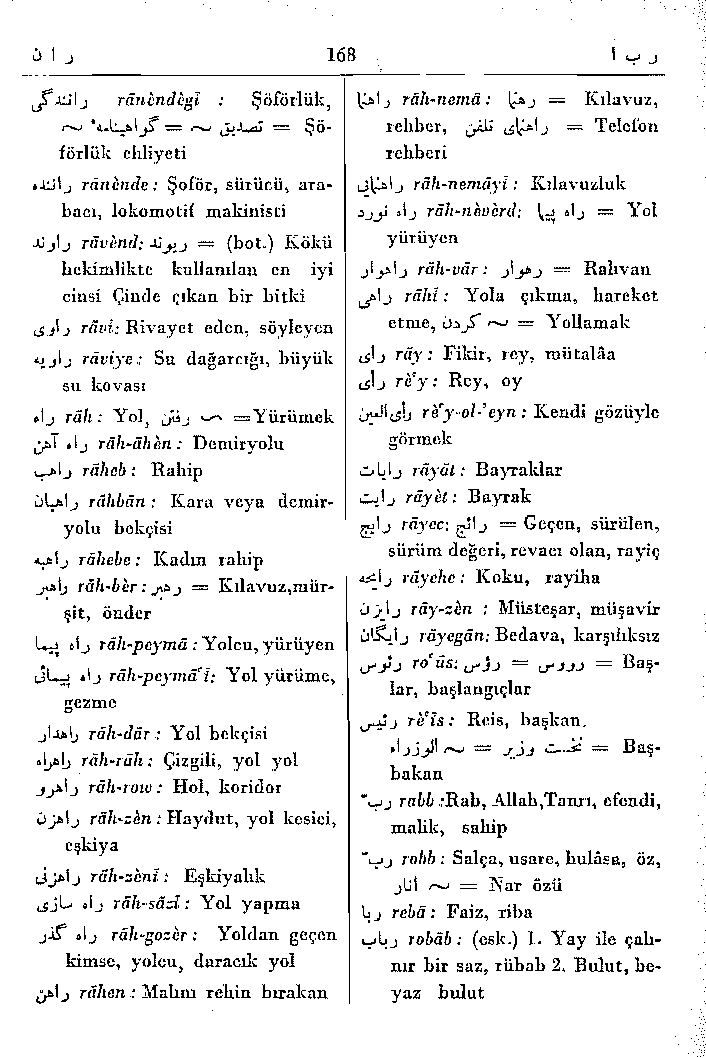 ر ا ن 168 ر ب ا
رانندگی rānèndègī : Şöförlük,
~ تصدیق = ~ گواهینامه = Şö-
förlük ehliyeti
راننده rānènde: Şoför, sürücü, ara-
bacı, lokomotif makinisti
راوند rāvènd; ریوند = (bot.) Kökü
hekimlikte kullanılan en iyi
cinsi Çinde çıkan bir bitki
راوی rāvī: Rivayet eden, söyleyen
راویه rāviye: Su dağarcığı, büyük
su kovası
راه rāh: Yol, رفتن ~ =Yürümek
راه آهن rāh-āhèn: Demiryolu
راهب rāheb: Rahip
راهبان rāhbān: Kara veya demir-
yolu bekçisi
راهبه rāhebe: Kadın rahip
راهبر rāh-bèr: رهبر = Kılavuz,mür-
şit, önder
راه پیما rāh-peymā: Yolcu, yürüyen
راه پیمائی rāh-peymā'ī: Yol yürüme,
gezme
راهدار rāh-dār: Yol bekçisi
راهراه rāh-rāh: Çizgili, yol yol
راهرو rāh-row: Hol, koridor
راهزن rāh-zèn: Haydut, yol kesici,
eşkiya
راهزنی rāh-zènī: Eşkiyalık
راه سازی rāh-sāzī: Yol yapma
راه گذر rāh-gozèr: Yoldan geçen
kimse, yolcu, daracık yol
راهن rāhen: Malını rehin bırakan
راهنما rāh-nemā: رهنما = Kılavuz,
rehber, راهنمای تلفن = Telefon
rehberi
راهنمایی rāh-nemāyī: Kılavuzluk
راه نورد rāh-nèvèrd; راه پیما = Yol
yürüyen
راهوار rāh-vār: رهوار = Rahvan
راهی rāhī: Yola çıkma, hareket
etme, ~ کردن = Yollamak
رای rāy: Fikir, rey, mütalâa
رأی rè'y: Rey, oy
رأی‌العین rè'y-ol-'eyn: Kendi gözüyle
görmek
رایات rāyāt: Bayraklar
رایت rāyèt: Bayrak
رایج rāyec; رائج = Geçen, sürülen,
sürüm değeri, revacı olan, rayiç
رایحه rāyehe: Koku, rayiha
رایزن rāy-zèn : Müsteşar, müşavir
رایگان rāyegān; Bedava, karşılıksız
رئوس ro'ūs; رؤس = رووس = Baş-
lar, başlangıçlar
رئیس rè'īs: Reis, başkan.
نخست وزیر = ~ الوزراء = Baş-
bakan
ربّ rabb:Rab, Allah,Tanrı, efendi,
malik, sahip
ربّ robb: Salça, usare, hulâsa, öz,
~ انار = Nar özü
ربا rebā: Faiz, riba
رباب robāb: (esk.) 1. Yay ile çalı-
nır bir saz, rübab 2. Bulut, be-
yaz bulut